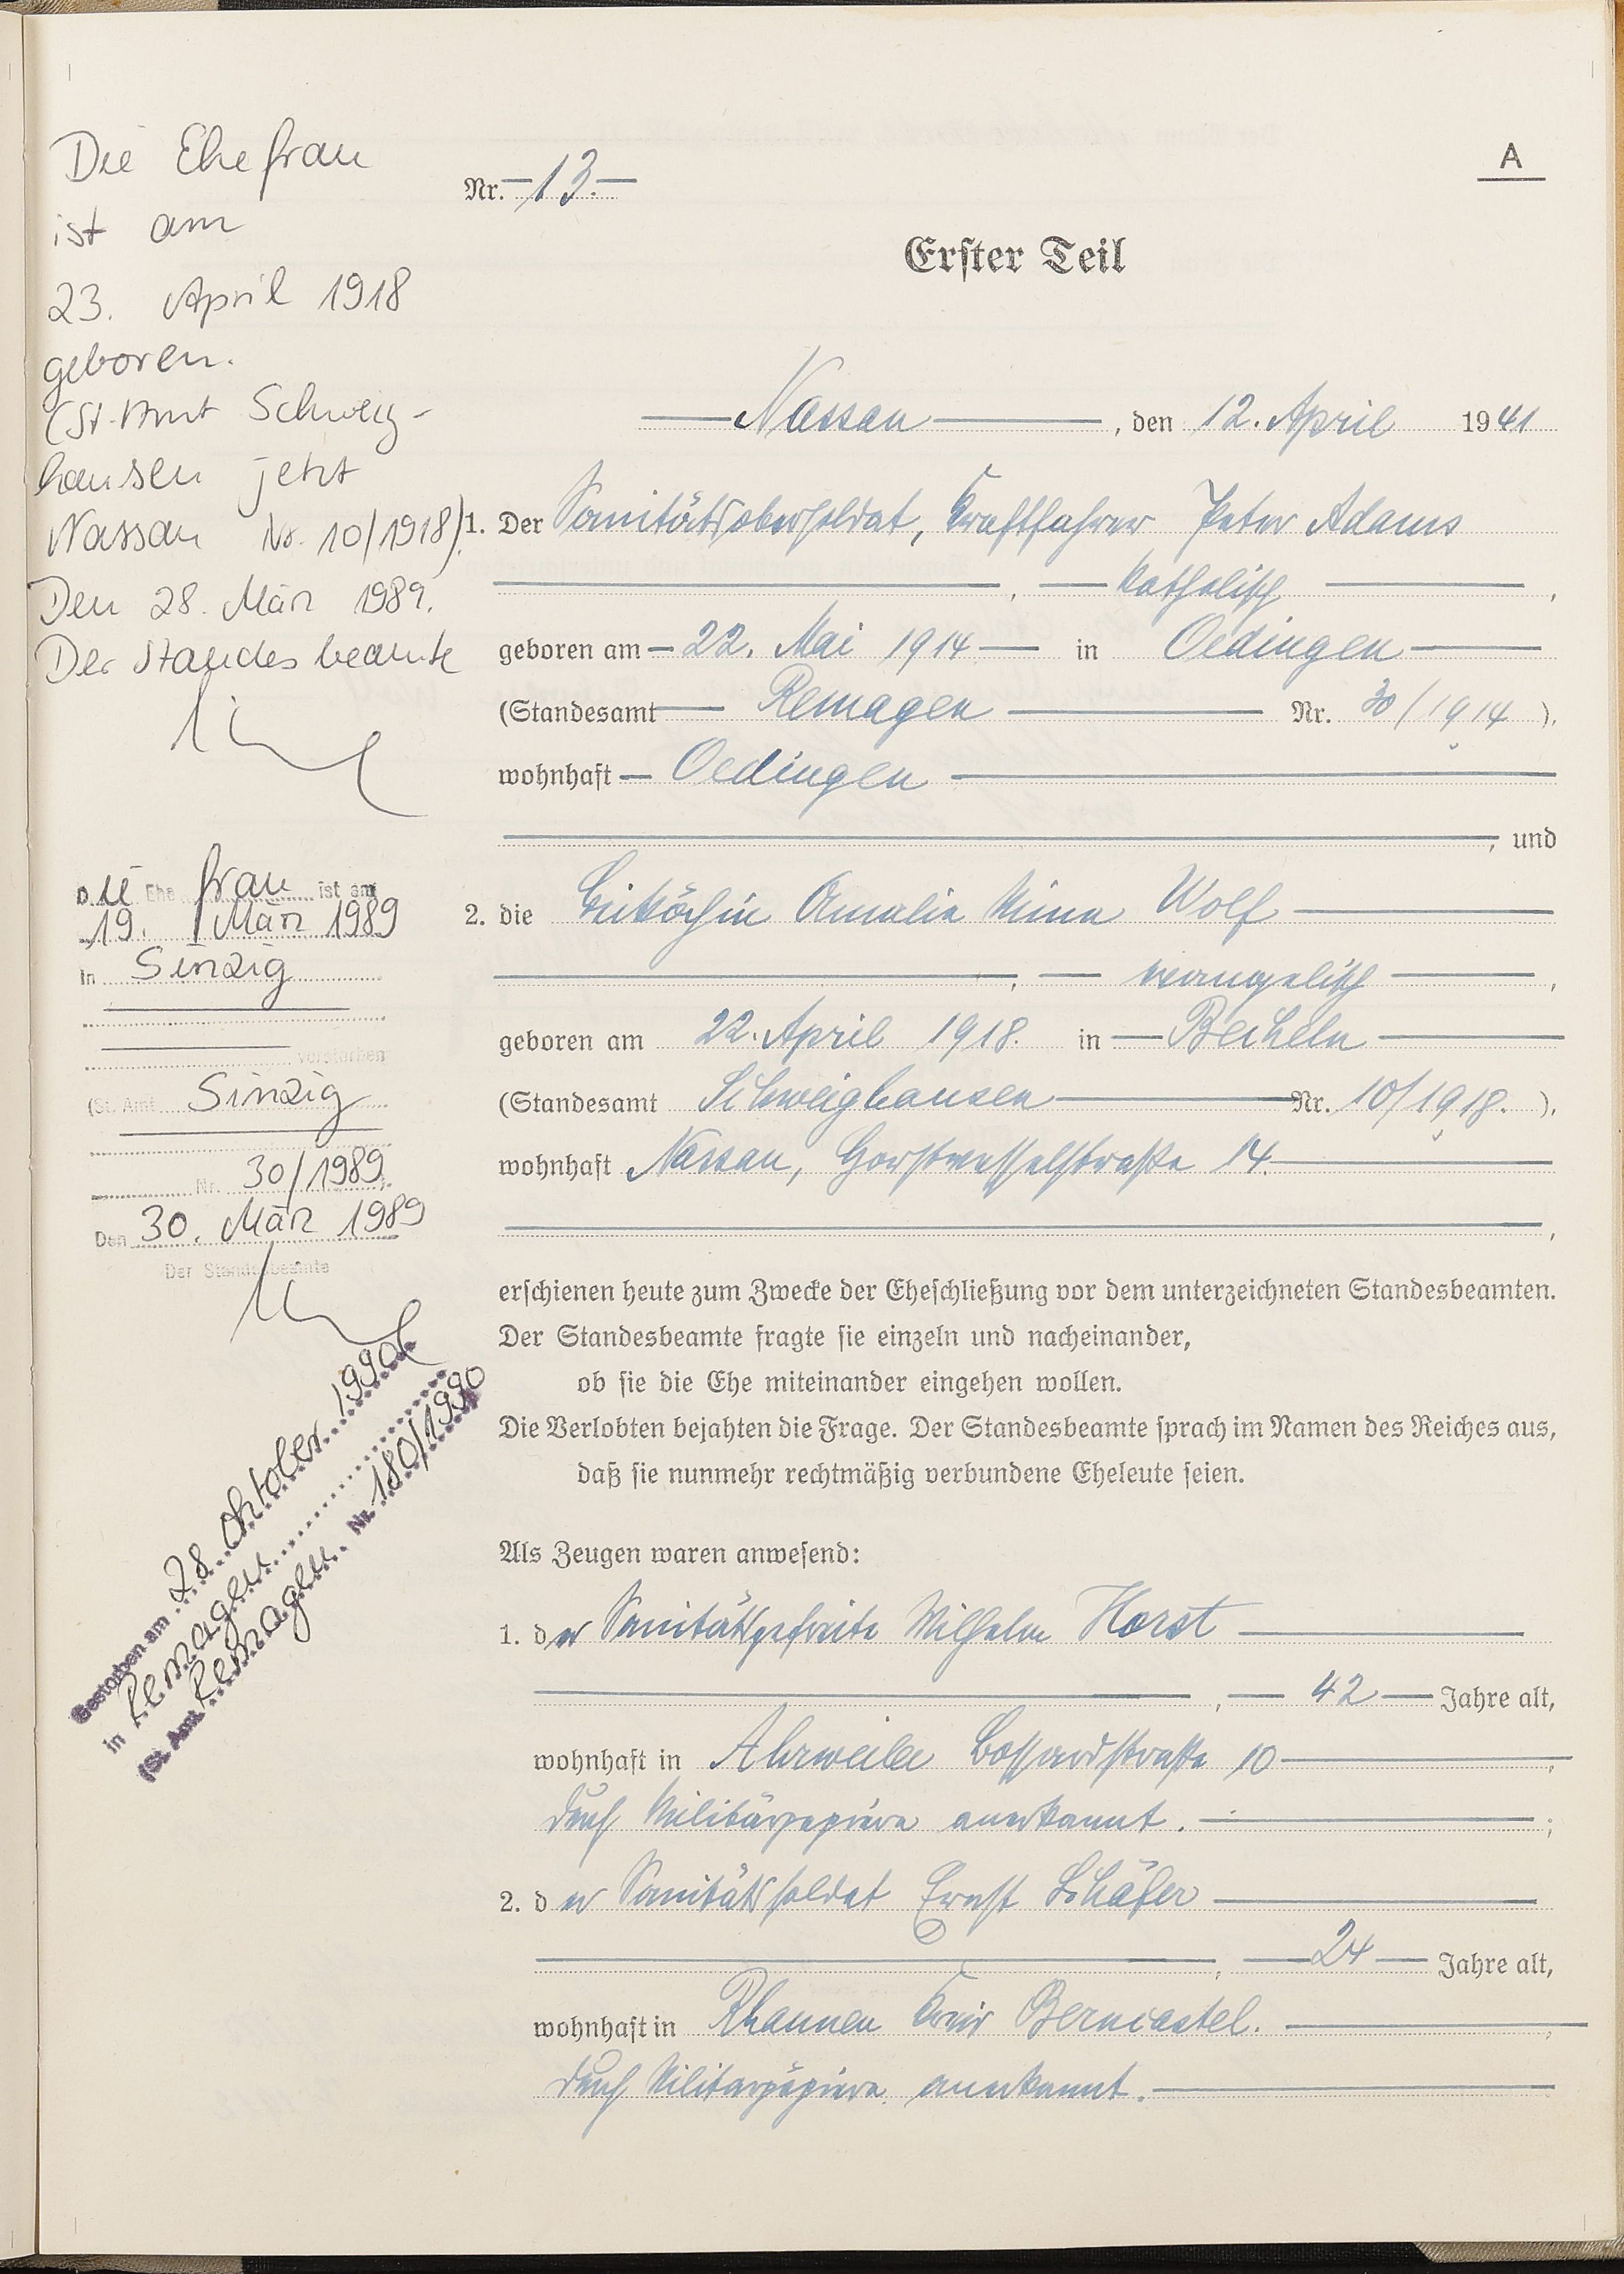 Die Ehefrau
ist am
23. April 1918
geboren.
(St.-Amt Schweig-
hausen jetzt
Nassau Nr. 10/1918).
Den 28. März 1989.
Der Standesbeamte
Die Ehefrau ist am
19. März 1989
in Sinzig
verstorben
(St. Amt Sinzig
Nr. 30/1989).
Den 30. März 1989
Der Standesbeamte
Gestorben am 28. Oktober 1990
in Remagen
(St. Amt Remagen Nr. 180/1990
A
Nr. 13.
Erster Teil
Nassau, den 12. April 1941
1. Der Sanitätsobersoldat, Kraftfahrer Peter Adams
, katholisch,
geboren am 22. Mai 1914 in Oedingen
(Standesamt Remagen Nr. 30/1914).
wohnhaft Oedingen
, und
2. die Beiköchin Amalie Mina Wolf
, evangelisch,
geboren am 22. April 1918. in Becheln
(Standesamt Schweighausen Nr. 10/1918.),
wohnhaft Nassau, Horstwesselstraße 14.
,
erschienen heute zum Zwecke der Eheschließung vor dem unterzeichneten Standesbeamten.
Der Standesbeamte fragte sie einzeln und nacheinander,
ob sie die Ehe miteinander eingehen wollen.
Die Verlobten bejahten die Frage. Der Standesbeamte sprach im Namen des Reiches aus,
daß sie nunmehr rechtmäßig verbundene Eheleute seien.
Als Zeugen waren anwesend:
1. der Sanitätsgefreite Wilhelm Horst
, 42 Jahre alt,
wohnhaft in Ahrweiler 10,
durch Militärpapiere anerkannt.;
2. der Sanitätssoldat Ernst Schäfer
, 24 Jahre alt,
wohnhaft in Rhaunen Kreis Berncastel.,
durch Militärpapiere anerkannt.